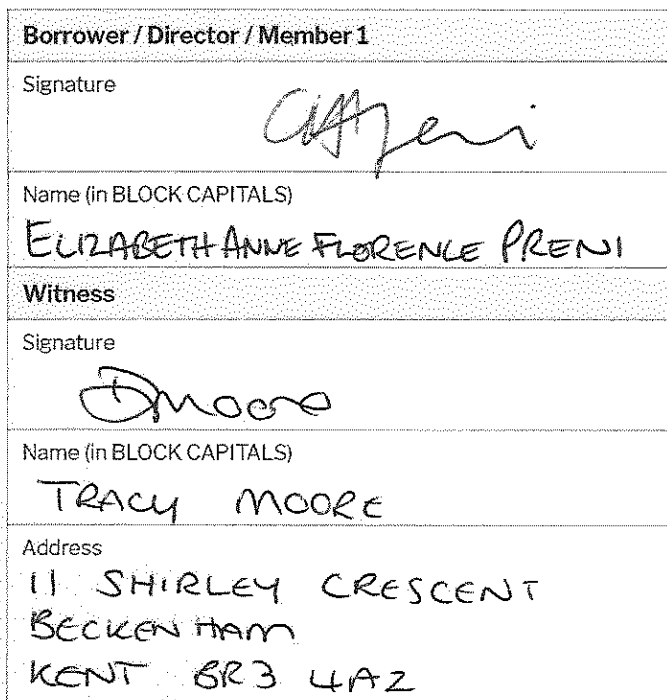 Borrower / Director / Member 1
Signature
Name (in BLOCK CAPITALS)
ELIZABETH ANNE FLORENCE PRENI
Witness
Signature
Moore
Name (in BLOCK CAPITALS)
TRACY MOORE
Address
11 SHIRLEY CRESCENT
BECKENHAM
KENT BR3 4AZ